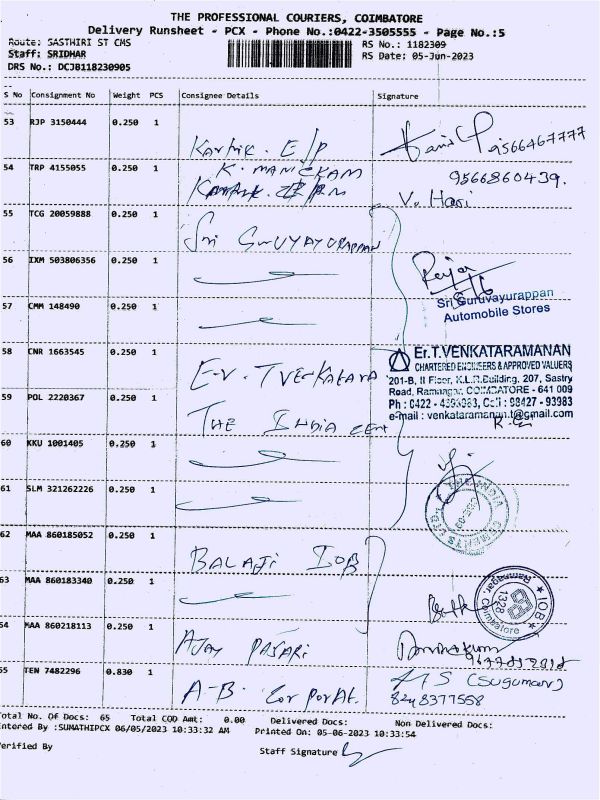 THE PROFESSIONAL COURIERS, COIMBATORE
Delivery Runsheet - PCX - Phone No.:0422-3505555 - Page No.:5
Route: SASTHIRI ST CMS
RS No.: 1182309
Staff: SRIDHAR
RS Date: 05-Jun-2023
DRS No.: DCJB118230905
S No Consignment No Weight PCS Consignee Details Signature
53 RJP 3150444 0.250 1
Karthik. E/P
9566467777
54 TRP 4155055 0.250 1
K. MANICKAM
9566860439.
V. Hari
55 TCG 20059888 0.250 1
Sri GURUVAYURAPPAN
56 IXM 503806356 0.250 1
Sri Guruvayurappan
Automobile Stores
57 CMM 148490 0.250 1
58 CNR 1663545 0.250 1
Er.T.VENKATARAMANAN
CHARTERED ENGINEERS & APPROVED VALUERS
201-B, II Floor, K.L.R.Building, 207, Sastry
Road, Ramnagar, COIMBATORE - 641 009
Ph : 0422 - Cell : 98427 - 93983
e-mail : venkataramanan.t@gmail.com
Er. T VENKATARA
59 POL 2220367 0.250 1
THE INDIA CEM
60 KKU 1001405 0.250 1
61 SLM 321262226 0.250 1
THE INDIA CEMENTS LTD
62 MAA 860185052 0.250 1
BALAJI IOB
63 MAA 860183340 0.250 1
IOB
Ramnagar, Coimbatore
1328
64 MAA 860218113 0.250 1
AJAY PAJARI
65 TEN 7482296 0.830 1
A-B. Corporat.
MS (Sugumar)
8248377558
Total No. Of Docs: 65 Total COD Amt: 0.00 Delivered Docs: Non Delivered Docs:
Entered By :SUMATHIPCX 06/05/2023 10:33:32 AM Printed On: 05-06-2023 10:33:54
Verified By
Staff Signature